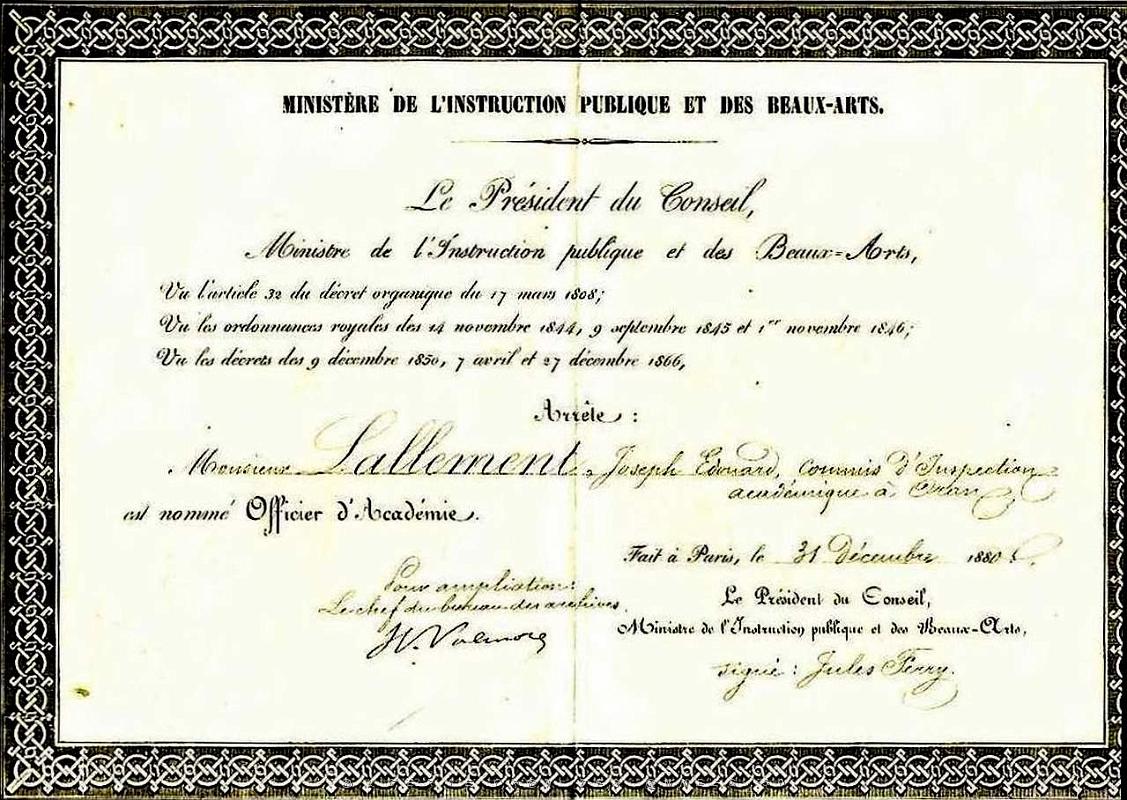 MINISTÈRE DE L'INSTRUCTION PUBLIQUE ET DES BEAUX-ARTS.
Le Président du Conseil,
Ministre de l'Instruction publique et des Beaux=Arts,
Vu l'article 32 du décret organique du 17 mars 1808;
Vu les ordonnances royales des 14 novembre 1844, 9 septembre 1845 et 1er novembre 1846;
Vu les décrets des 9 décembre 1850, 7 avril et 27 décembre 1866,
Arrête :
Monsieur Lallement, Joseph Edouard, commis d'Inspection
académique à Oran,
est nommé Officier d'Académie.
Fait à Paris, le 31 Décembre 1880
Pour ampliation:
Le chef du bureau des archives,
Le Président du Conseil,
Ministre de l'Instruction publique et des Beaux-Arts,
signé : Jules Ferry.